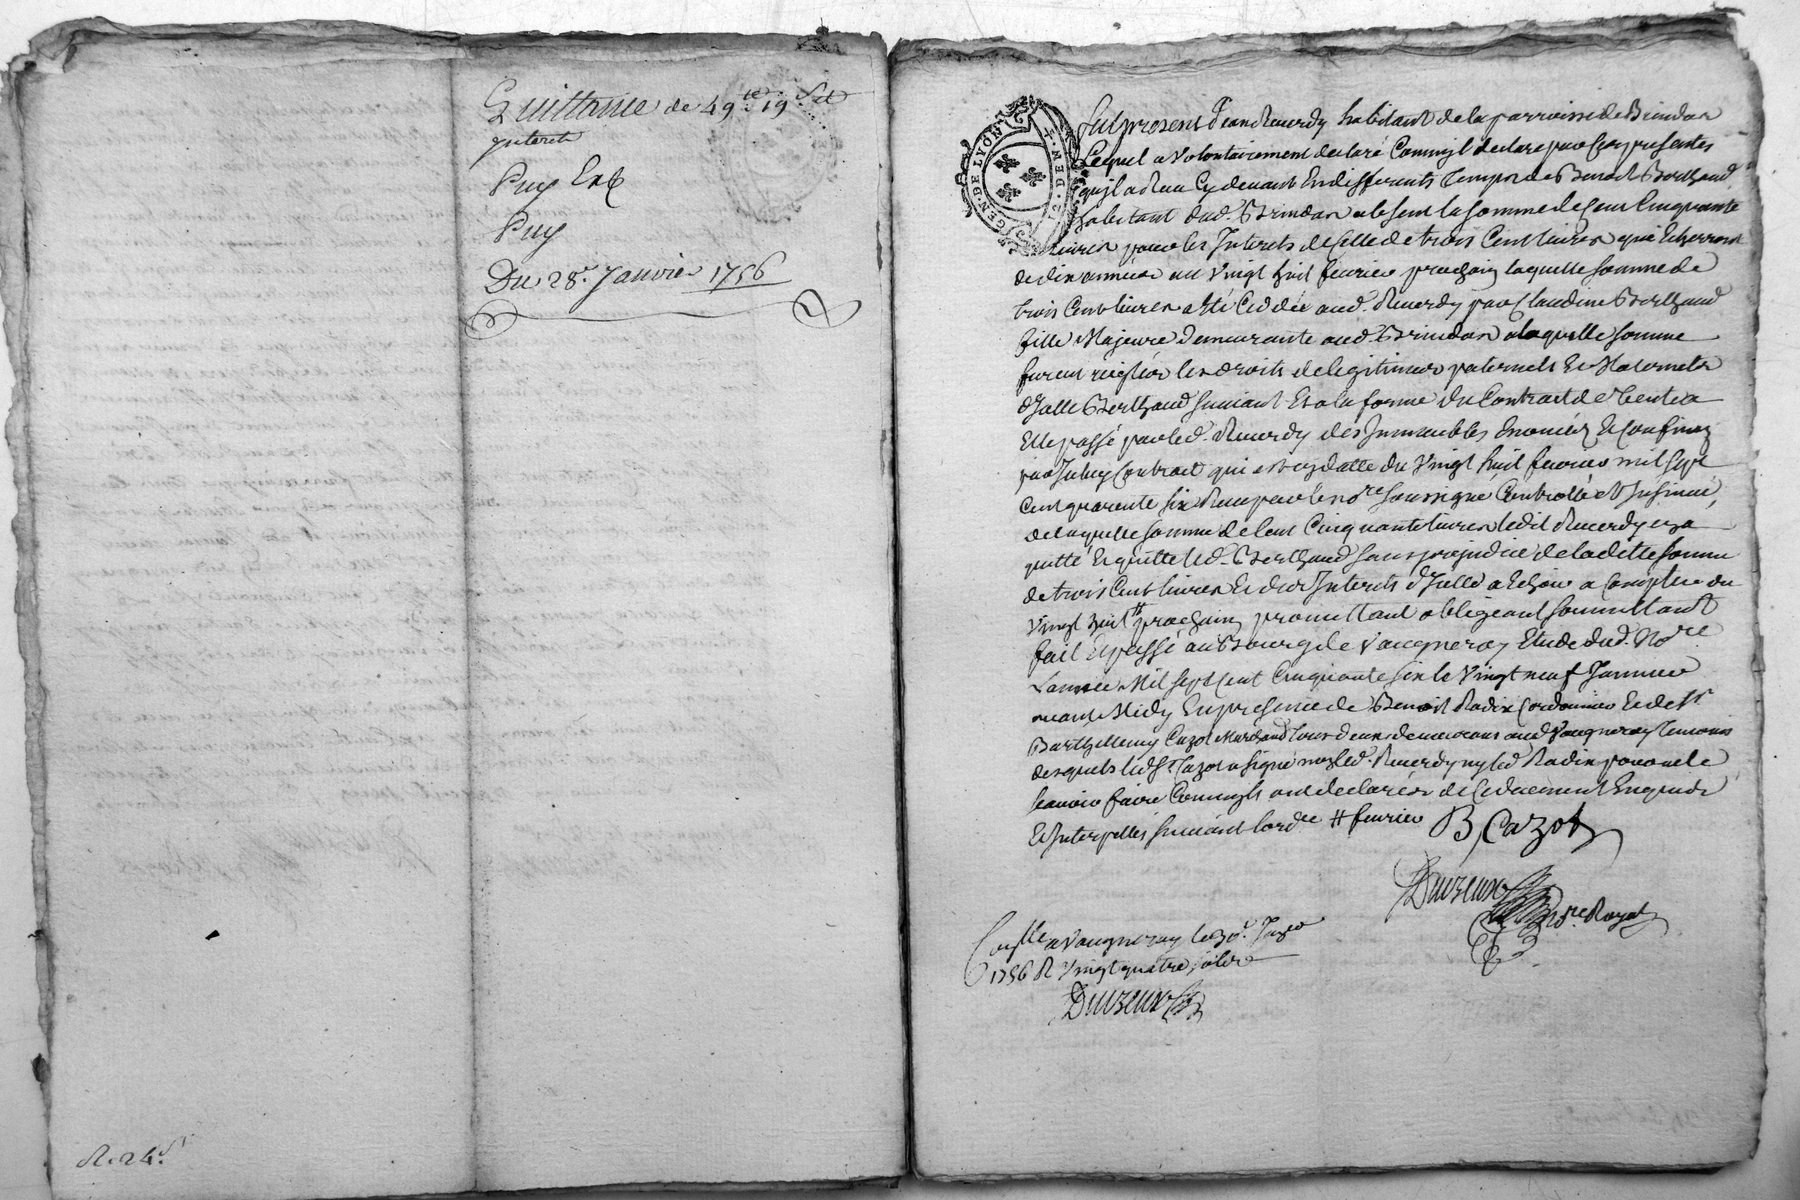 Quittance de 49 lt 19 s d
Interets
Puy Ent
Puy
Du 28e Janvier 1756
R. 24 s
GEN. DE LYON
Fut present Jean Reverdy habitant de la parroisse de Brindas
Lequel a Volontairement declaré Comm'il declare par Ces presentes
qu'il a Reçu Cy devant En differents Temps de Benoit Berthaud
habitant dud. Brindas absent la somme de Cent Cinquante
livres pour les Interets de Celle de trois Cent livres qui Echerront
de dix années au Vingt huit fevrier prochain laquelle somme de
trois Cent livres a été Ceddée aud. Reverdy par Claudine Berthaud
fille Majeure Demeurante aud. Brindas a laquelle somme
furent reiglés les droits de legitimes paternels Et Maternels
d'Jcelle Berthaud suivant Et a la forme du Contract de Vente a
Elle passé par led. Reverdy des Immeubles Enoncés Et Confinés
par Iceluy Contract qui est en datte du Vingt huit fevrier mil sept
Cent quarente six Reçu par le nore soussigné Controllé Et Insinué,
de laquelle somme de Cent Cinquante livres ledit Reverdy en a
quitté Et quitte led. Berthaud sans prejudice de laditte somme
de trois Cent livres Et des Interets d'Jcelle a Echoir a Compter du
Vingt huit # prochain promettant obligeant soumettant
fait Et passé au Bourg de Vaugneray Etude dud. Nore
L'année Mil sept Cent Cinquante six le Vingt neuf Janvier
avant Midy En presence de Benoit Radix Cordonnier Et de sr
Barthellemy Cazot Marchand tous deux demeurans aud Vaugneray temoins
desquels led sr Cazot a signé non led. Reverdy ny led Radix pour ne le
scavoir faire Comm'ils ont declarés de Ce duement Enquis
Et Interpellés suivant l'ordre # fevrier
B Cazot
Duvzeux
Nore Royal
Conlle a Vaugneray le 30e Janer
1756 R Vingt quatre sols
Duvzeux